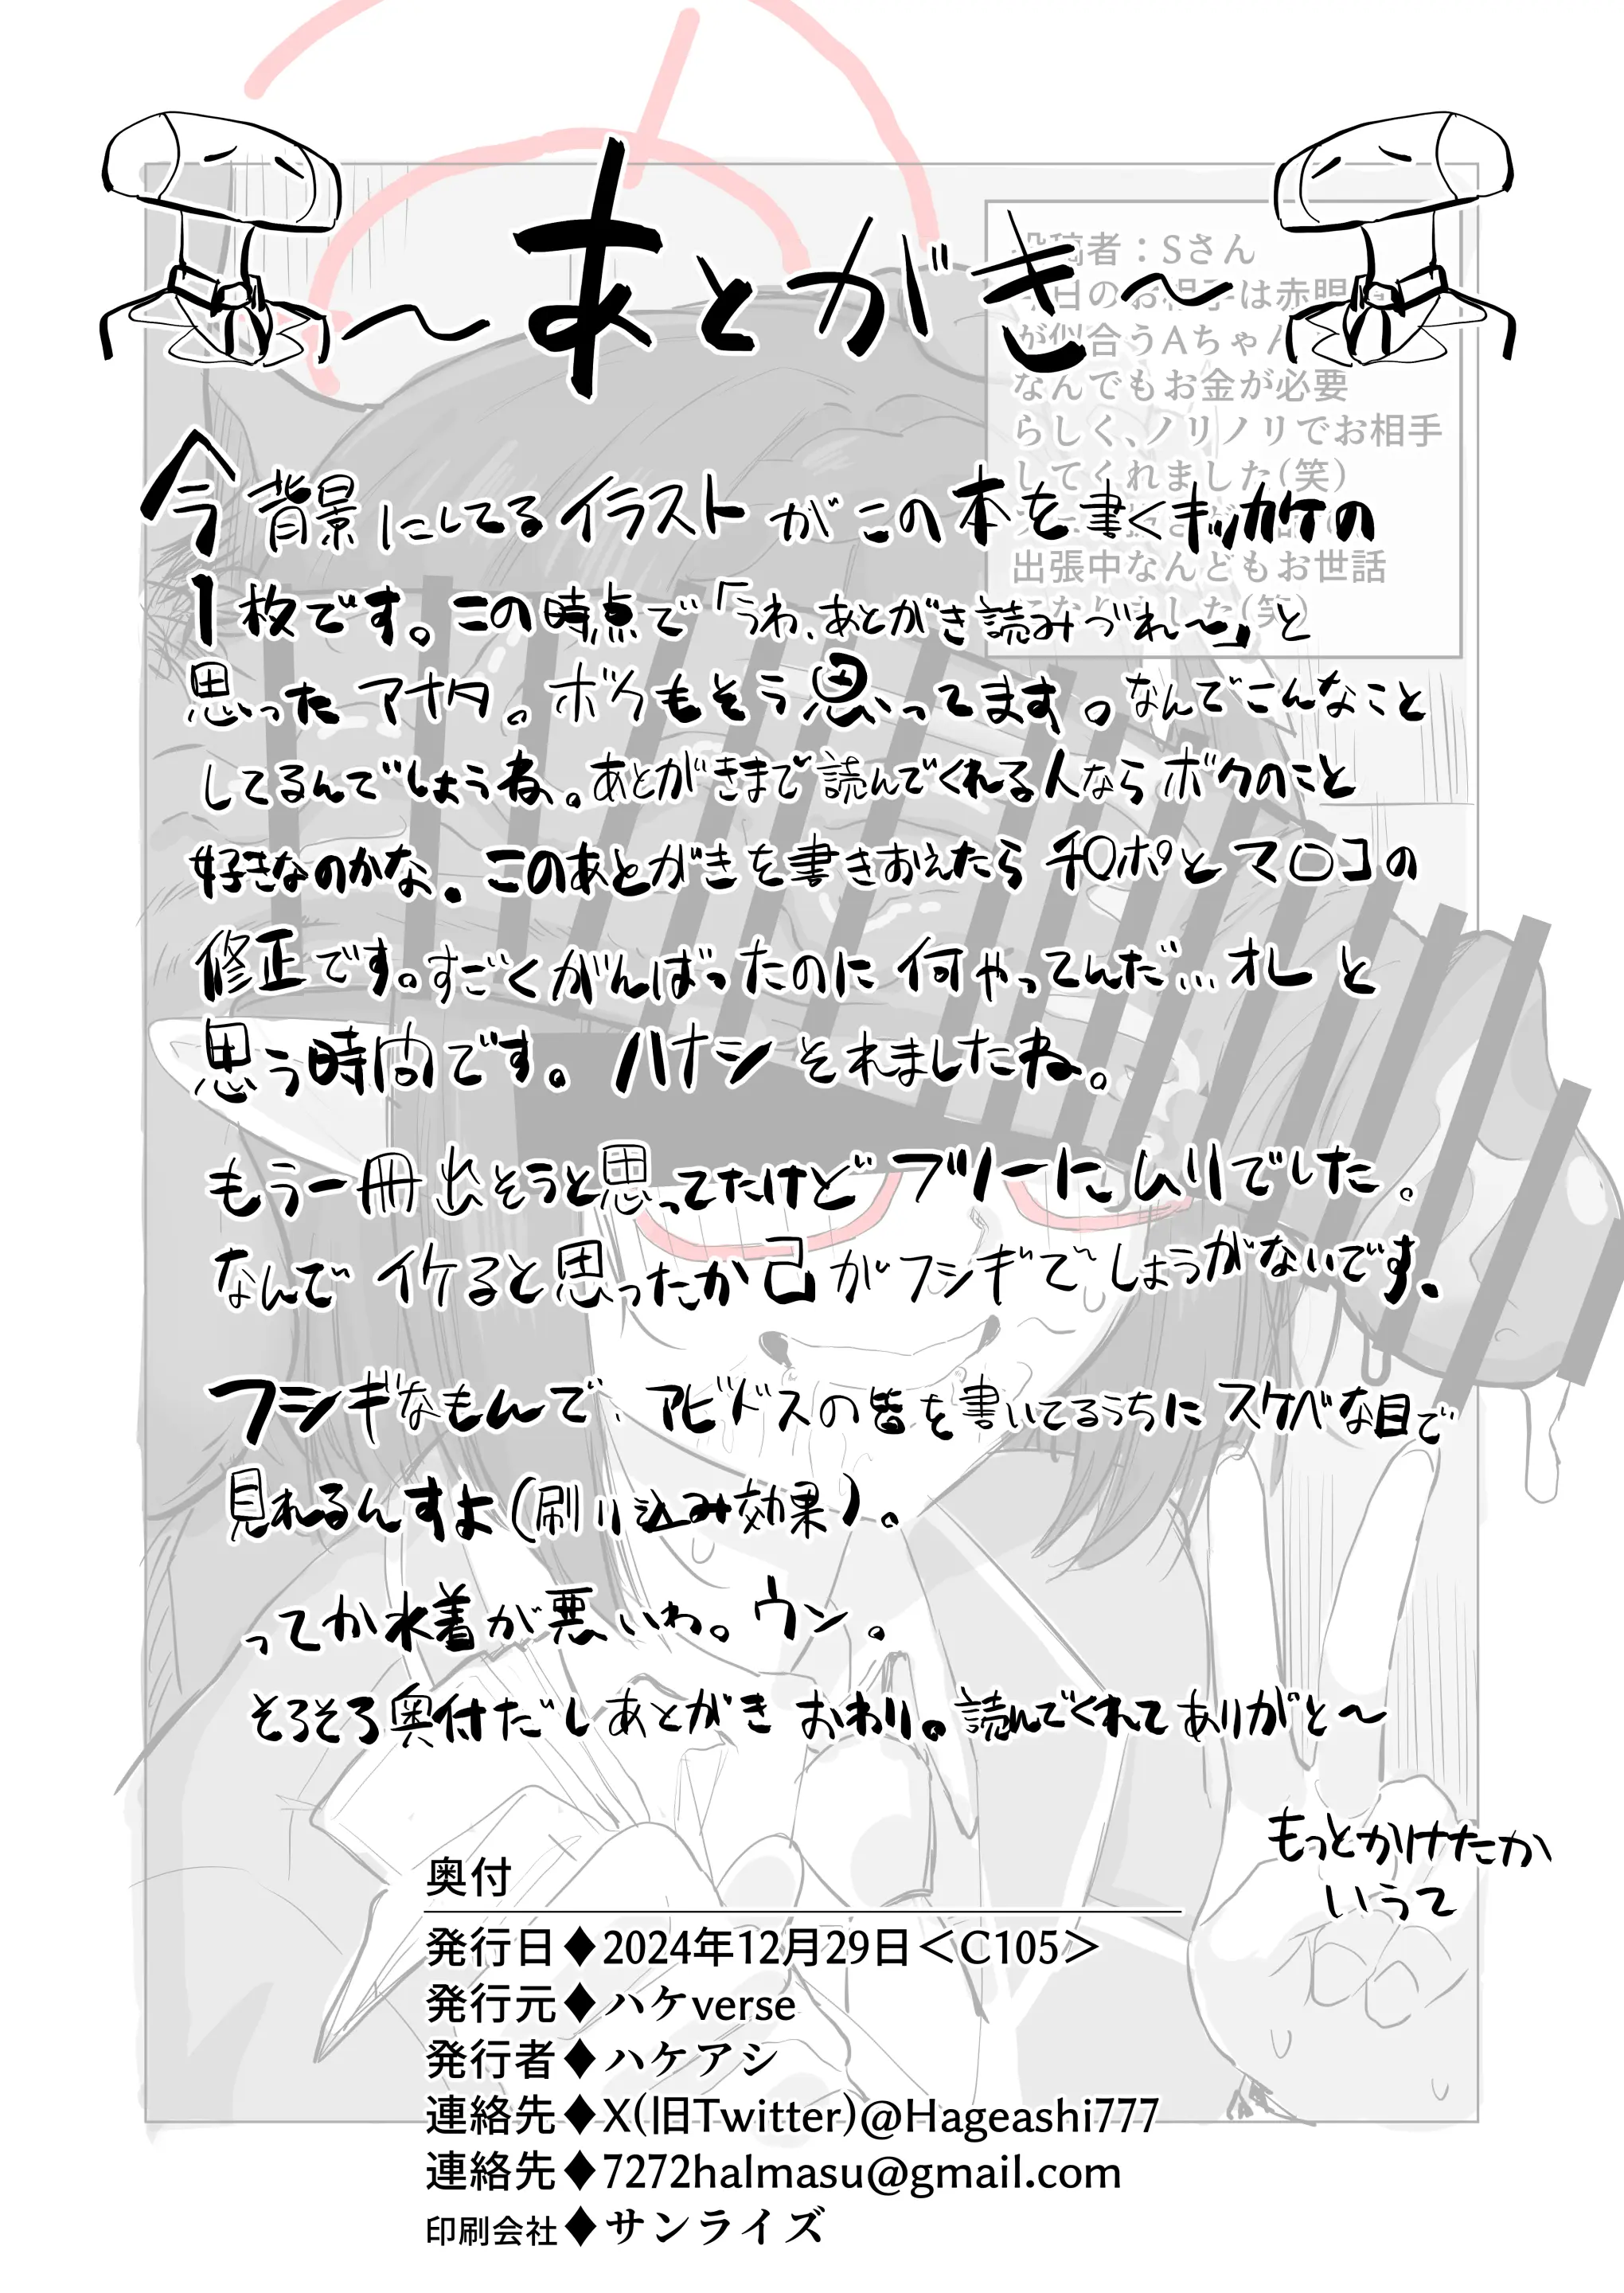 ～あとがき～
投稿者：Sさん
今日のお相手は赤眼鏡
が似合うAちゃん
なんでもお金が必要
らしく、ノリノリでお相手
してくれました(笑)
出張中なんどもお世話
になりました(笑)
今背景にしてるイラストがこの本を書くキッカケの
1枚です。この時点で「うわ、あとがき読みづれ～」と
思ったアナタ。ボクもそう思ってます。なんでこんなこと
してるんでしょうね。あとがきまで読んでくれる人ならボクのこと
好きなのかな。このあとがきを書きおえたらチ〇ポとマ〇コの
修正です。すごくがんばったのに何やってんだ…オレと
思う時間です。ハナシそれましたね。
もう一冊出そうと思ってたけどフツーにムリでした。
なんでイケると思ったか己がフシギでしょうがないです。
フシギなもんで、アビドスの皆を書いてるうちにスケベな目で
見れるんすよ(刷り込み効果)。
ってか水着が悪いわ。ウン。
そろそろ奥付だしあとがきおわり。読んでくれてありがと～
もっとかけたか
いうて
奥付
発行日♦2024年12月29日＜C105＞
発行元♦ハケverse
発行者♦ハケアシ
連絡先♦X(旧Twitter)@Hageashi777
連絡先♦7272halmasu@gmail.com
印刷会社♦サンライズ